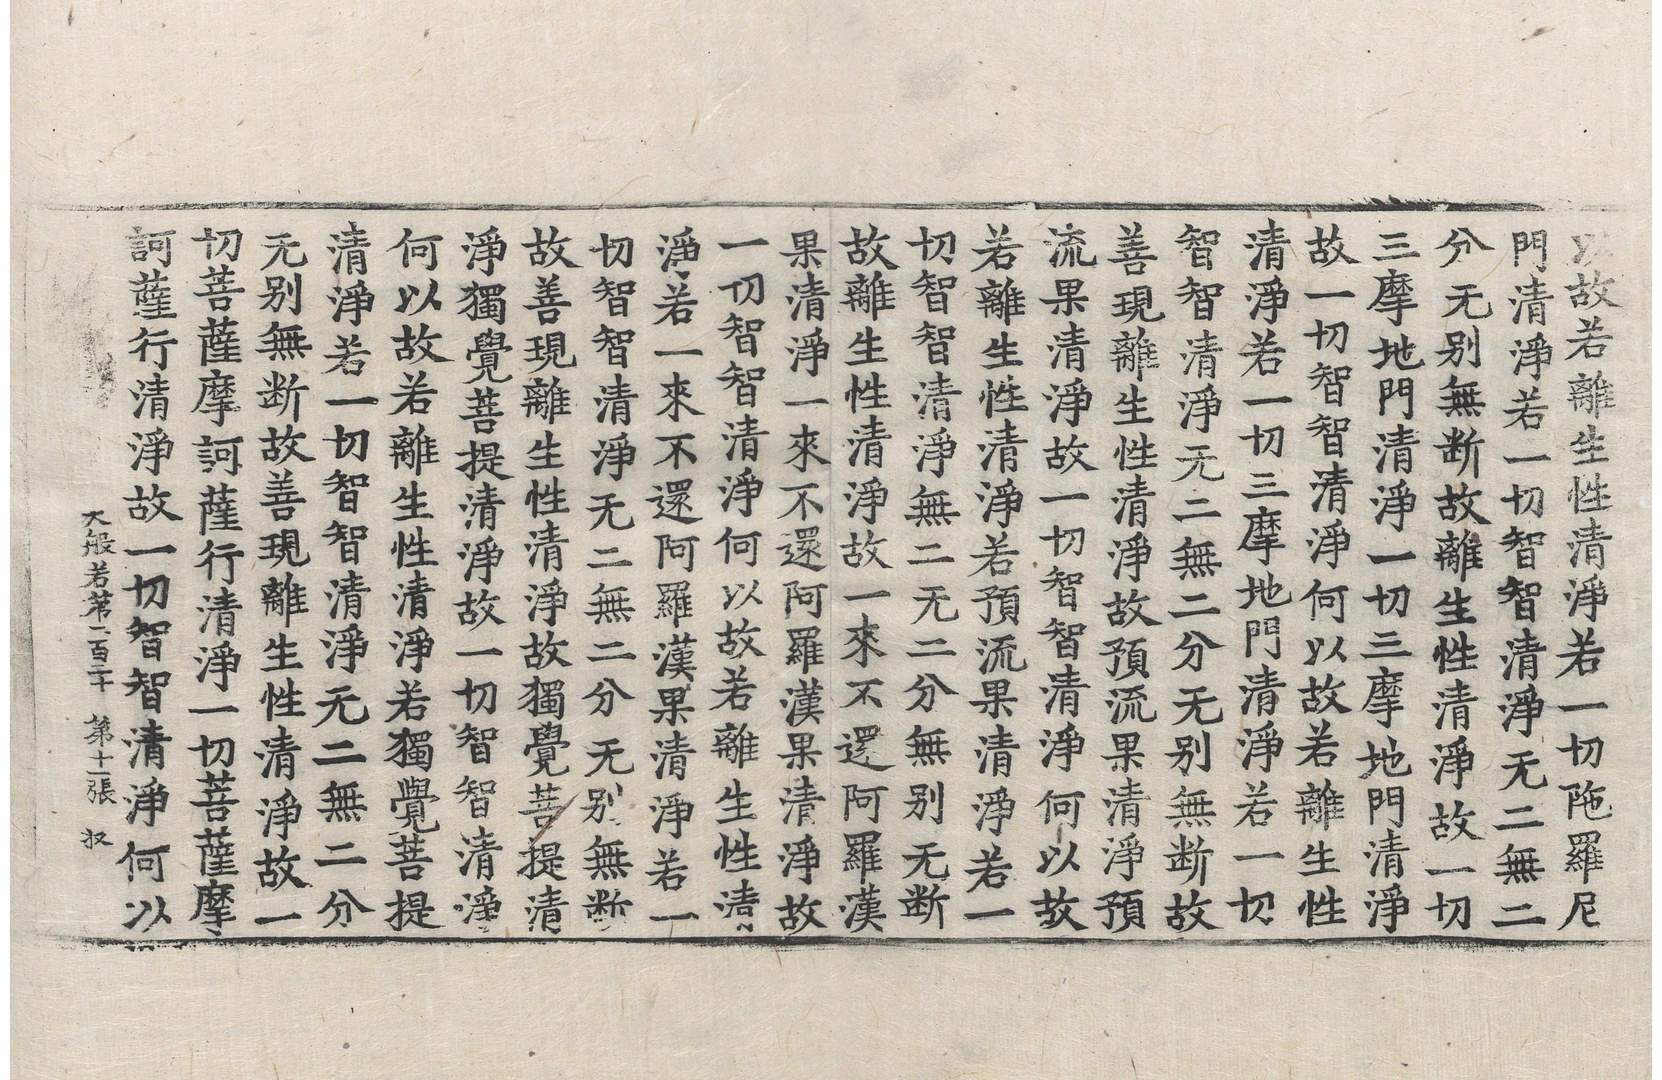 以故若離生性清淨若一切陁羅尼
門清淨若一切智智清淨无二無二
分无别無断故離生性清淨故一切
三摩地門清淨一切三摩地門清淨
故一切智智清淨何以故若離生性
清淨若一切三摩地門清淨若一切
智智清淨无二無二分无别無断故
善現離生性清淨故預流果清淨預
流果清淨故一切智智清淨何以故
若離生性清淨若預流果清淨若一
切智智清淨無二无二分無别无断
故離生性清淨故一來不還阿羅漢
果清淨一來不還阿羅漢果清淨故
一切智智清淨何以故若離生性清
淨若一來不還阿羅漢果清淨若一
切智智清淨无二無二分无别無断
故善現離生性清淨故獨覺菩提清
淨獨覺菩提清淨故一切智智清淨
何以故若離生性清淨若獨覺菩提
清淨若一切智智清淨无二無二分
无别無断故善現離生性清淨故一
切菩薩摩訶薩行清淨一切菩薩摩
訶薩行清淨故一切智智清淨何以
大般若第二百三十 第十一張 㕛